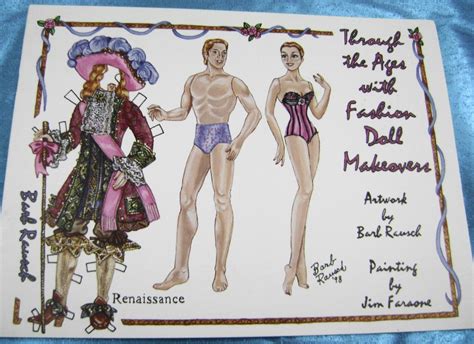 Through
the Ages
with
Fashion
Doll
Makeovers
Artwork
by
Barb Rausch
Painting
by
Jim Faraone
Barb Rausch
Renaissance
Barb
Rausch
'98